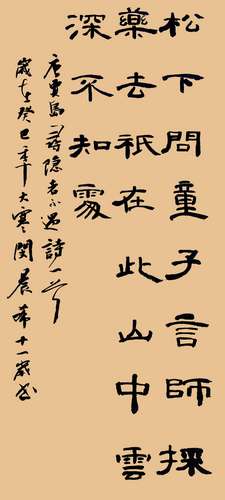 松下問童子言師採
藥去祇在此山中雲
深不知處
唐賈島尋隐者不遇詩一首
歲在癸巳年大寒閔晨希十一歲書